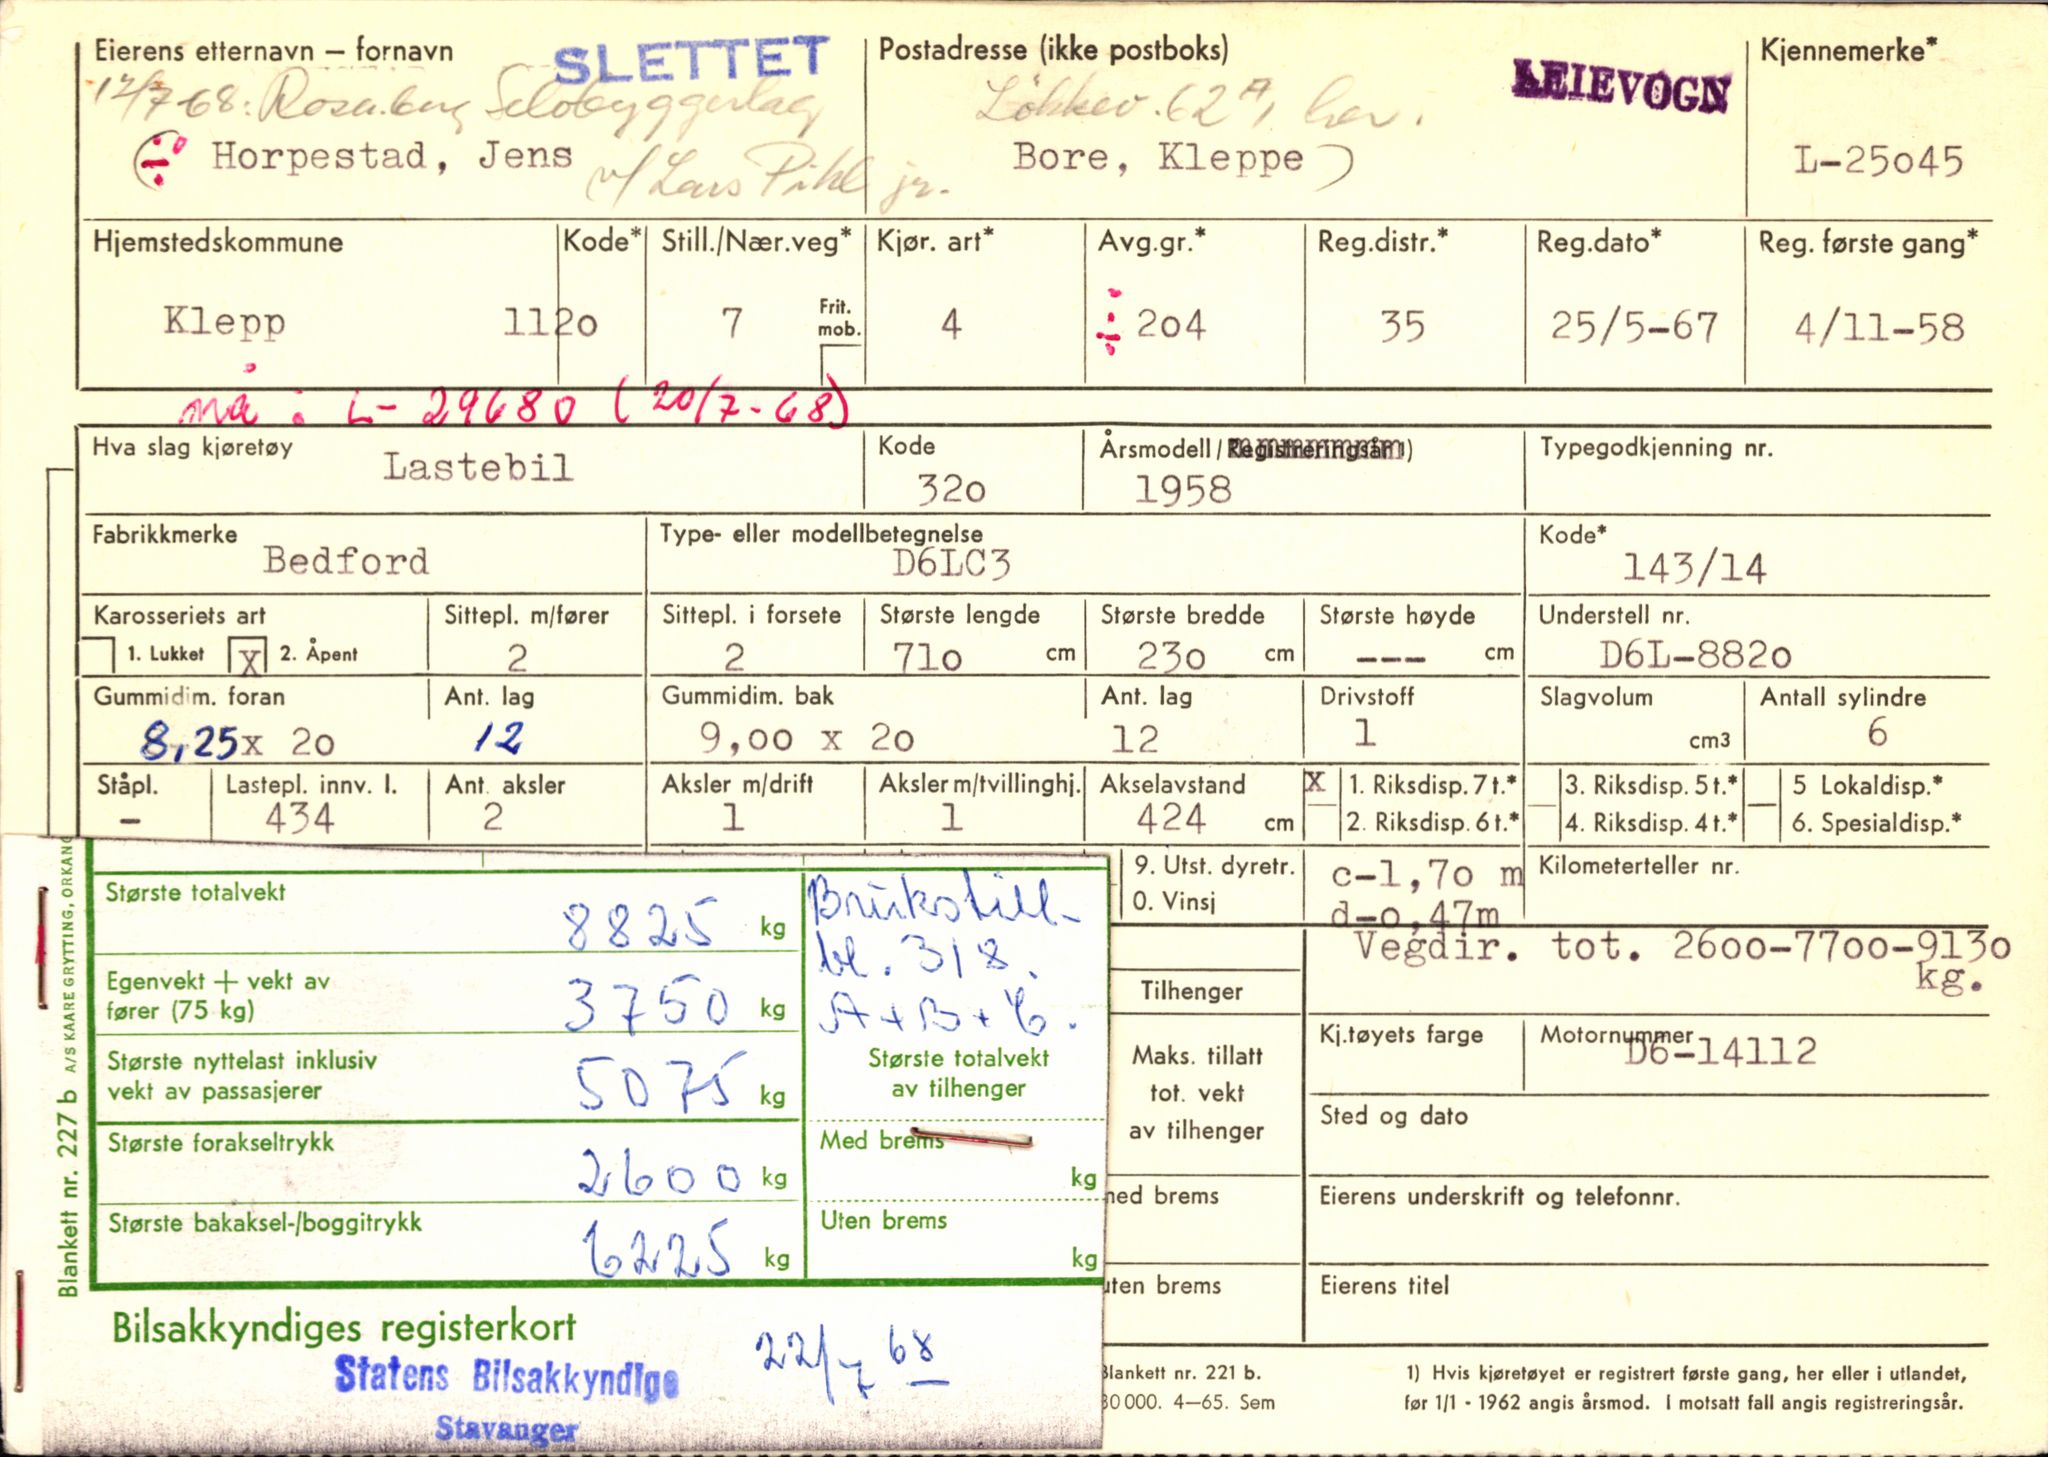 Eierens etternavn – fornavn SLETTET Postadresse (ikke postboks) LEIEVOGN Kjennemerke*
17/7-68: Rosenberg Selvbyggerlag Løkkev. 62A, her.
÷ (Horpestad, Jens v/ Lars Pihl jr. Bore, Kleppe) L-25o45
Hjemstedskommune Kode* Still./Nær.veg* Kjør. art* Avg.gr.* Reg.distr.* Reg.dato* Reg. første gang*
Klepp 112o 7 Frit. mob. 4 ÷ 2o4 35 25/5-67 4/11-58
nå: L-29680 (20/7-68)
Hva slag kjøretøy Kode Årsmodell/Registreringsår 1) Typegodkjenning nr.
Lastebil 32o 1958
Fabrikkmerke Type- eller modellbetegnelse Kode*
Bedford D6LC3 143/14
Karosseriets art Sittepl. m/fører Sittepl. i forsete Største lengde Største bredde Største høyde Understell nr.
1. Lukket X 2. Åpent 2 2 71o cm 23o cm --- cm D6L-882o
Gummidim. foran Ant. lag Gummidim. bak Ant. lag Drivstoff Slagvolum Antall sylindre
8,25x 2o 12 9,oo x 2o 12 1 cm3 6
Ståpl. Lastepl. innv. l. Ant. aksler Aksler m/drift Aksler m/tvillinghj. Akselavstand X 1. Riksdisp. 7 t.* 3. Riksdisp. 5 t.* 5 Lokaldisp.*
- 434 2 1 1 424 cm 2. Riksdisp. 6 t.* 4. Riksdisp. 4 t.* 6. Spesialdisp.*
9. Utst. dyretr. c-1,7o m Kilometerteller nr.
0. Vinsj d-o,47m
Vegdir. tot. 26oo-77oo-913o
kg.
Største totalvekt 8825 kg
Brukstill-
bl. 3/8.
A+B+C.
Egenvekt + vekt av
fører (75 kg) 3750 kg
Største nyttelast inklusiv
vekt av passasjerer 5075 kg
Største totalvekt
av tilhenger
Største forakseltrykk 2600 kg
Med brems kg
Største bakaksel-/boggitrykk 6225 kg
Uten brems kg
Tilhenger
Maks. tillatt
tot. vekt
av tilhenger
med brems
uten brems
Kj.tøyets farge Motornummer
D6-14112
Sted og dato
Eierens underskrift og telefonnr.
Eierens titel
Blankett nr. 227 b A/S KAARE GRYTTING, ORKANG
Bilsakkyndiges registerkort
Statens Bilsakkyndige
Stavanger
22/7 68
Blankett nr. 221 b.
30 000. 4–65. Sem
1) Hvis kjøretøyet er registrert første gang, her eller i utlandet,
før 1/1 - 1962 angis årsmod. I motsatt fall angis registreringsår.